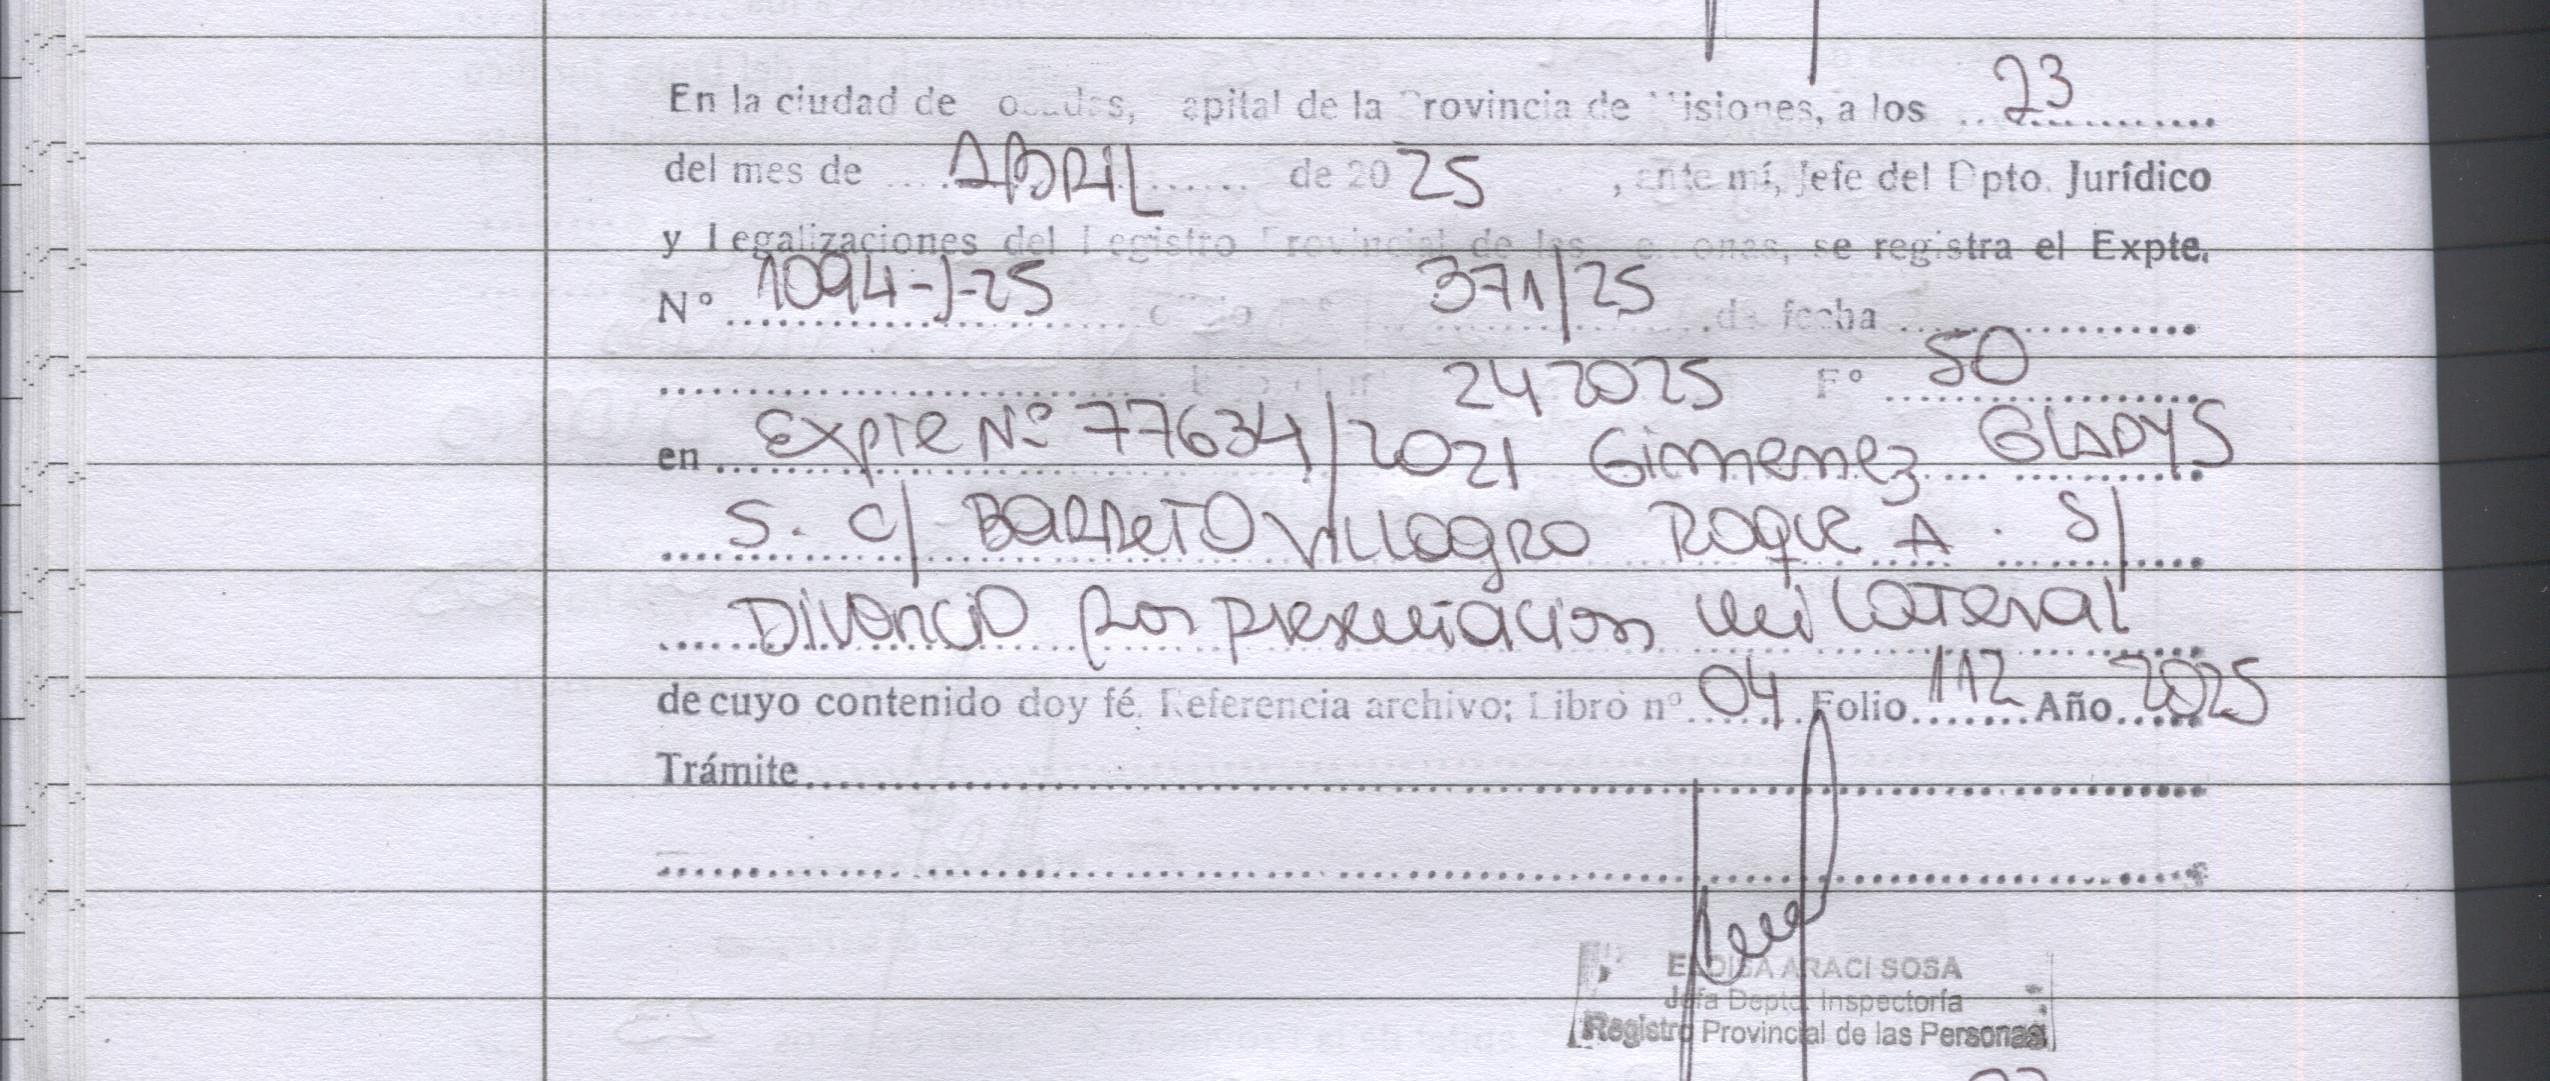 En la ciudad de osadas, apital de la rovincia de isiones, a los 23
del mes de ABRIL de 2025, ante mí, Jefe del Dpto. Jurídico
y Legalizaciones del Registro Provincial de las e onas, se registra el Expte.
N° 1094-J-25 371/25 de fecha
242025 F° 50
en Expte N° 77634/2021 Gimenez GLADYS
S. c/ BARRETO Villagro Roque A. S/
Divorcio por presentacion unilateral
de cuyo contenido doy fé. Referencia archivo; Libro n° 04 Folio 112 Año 2025
Trámite
ELOISA ARACI SOSA
Jefa Depto. Inspectoría
Registro Provincial de las Personas